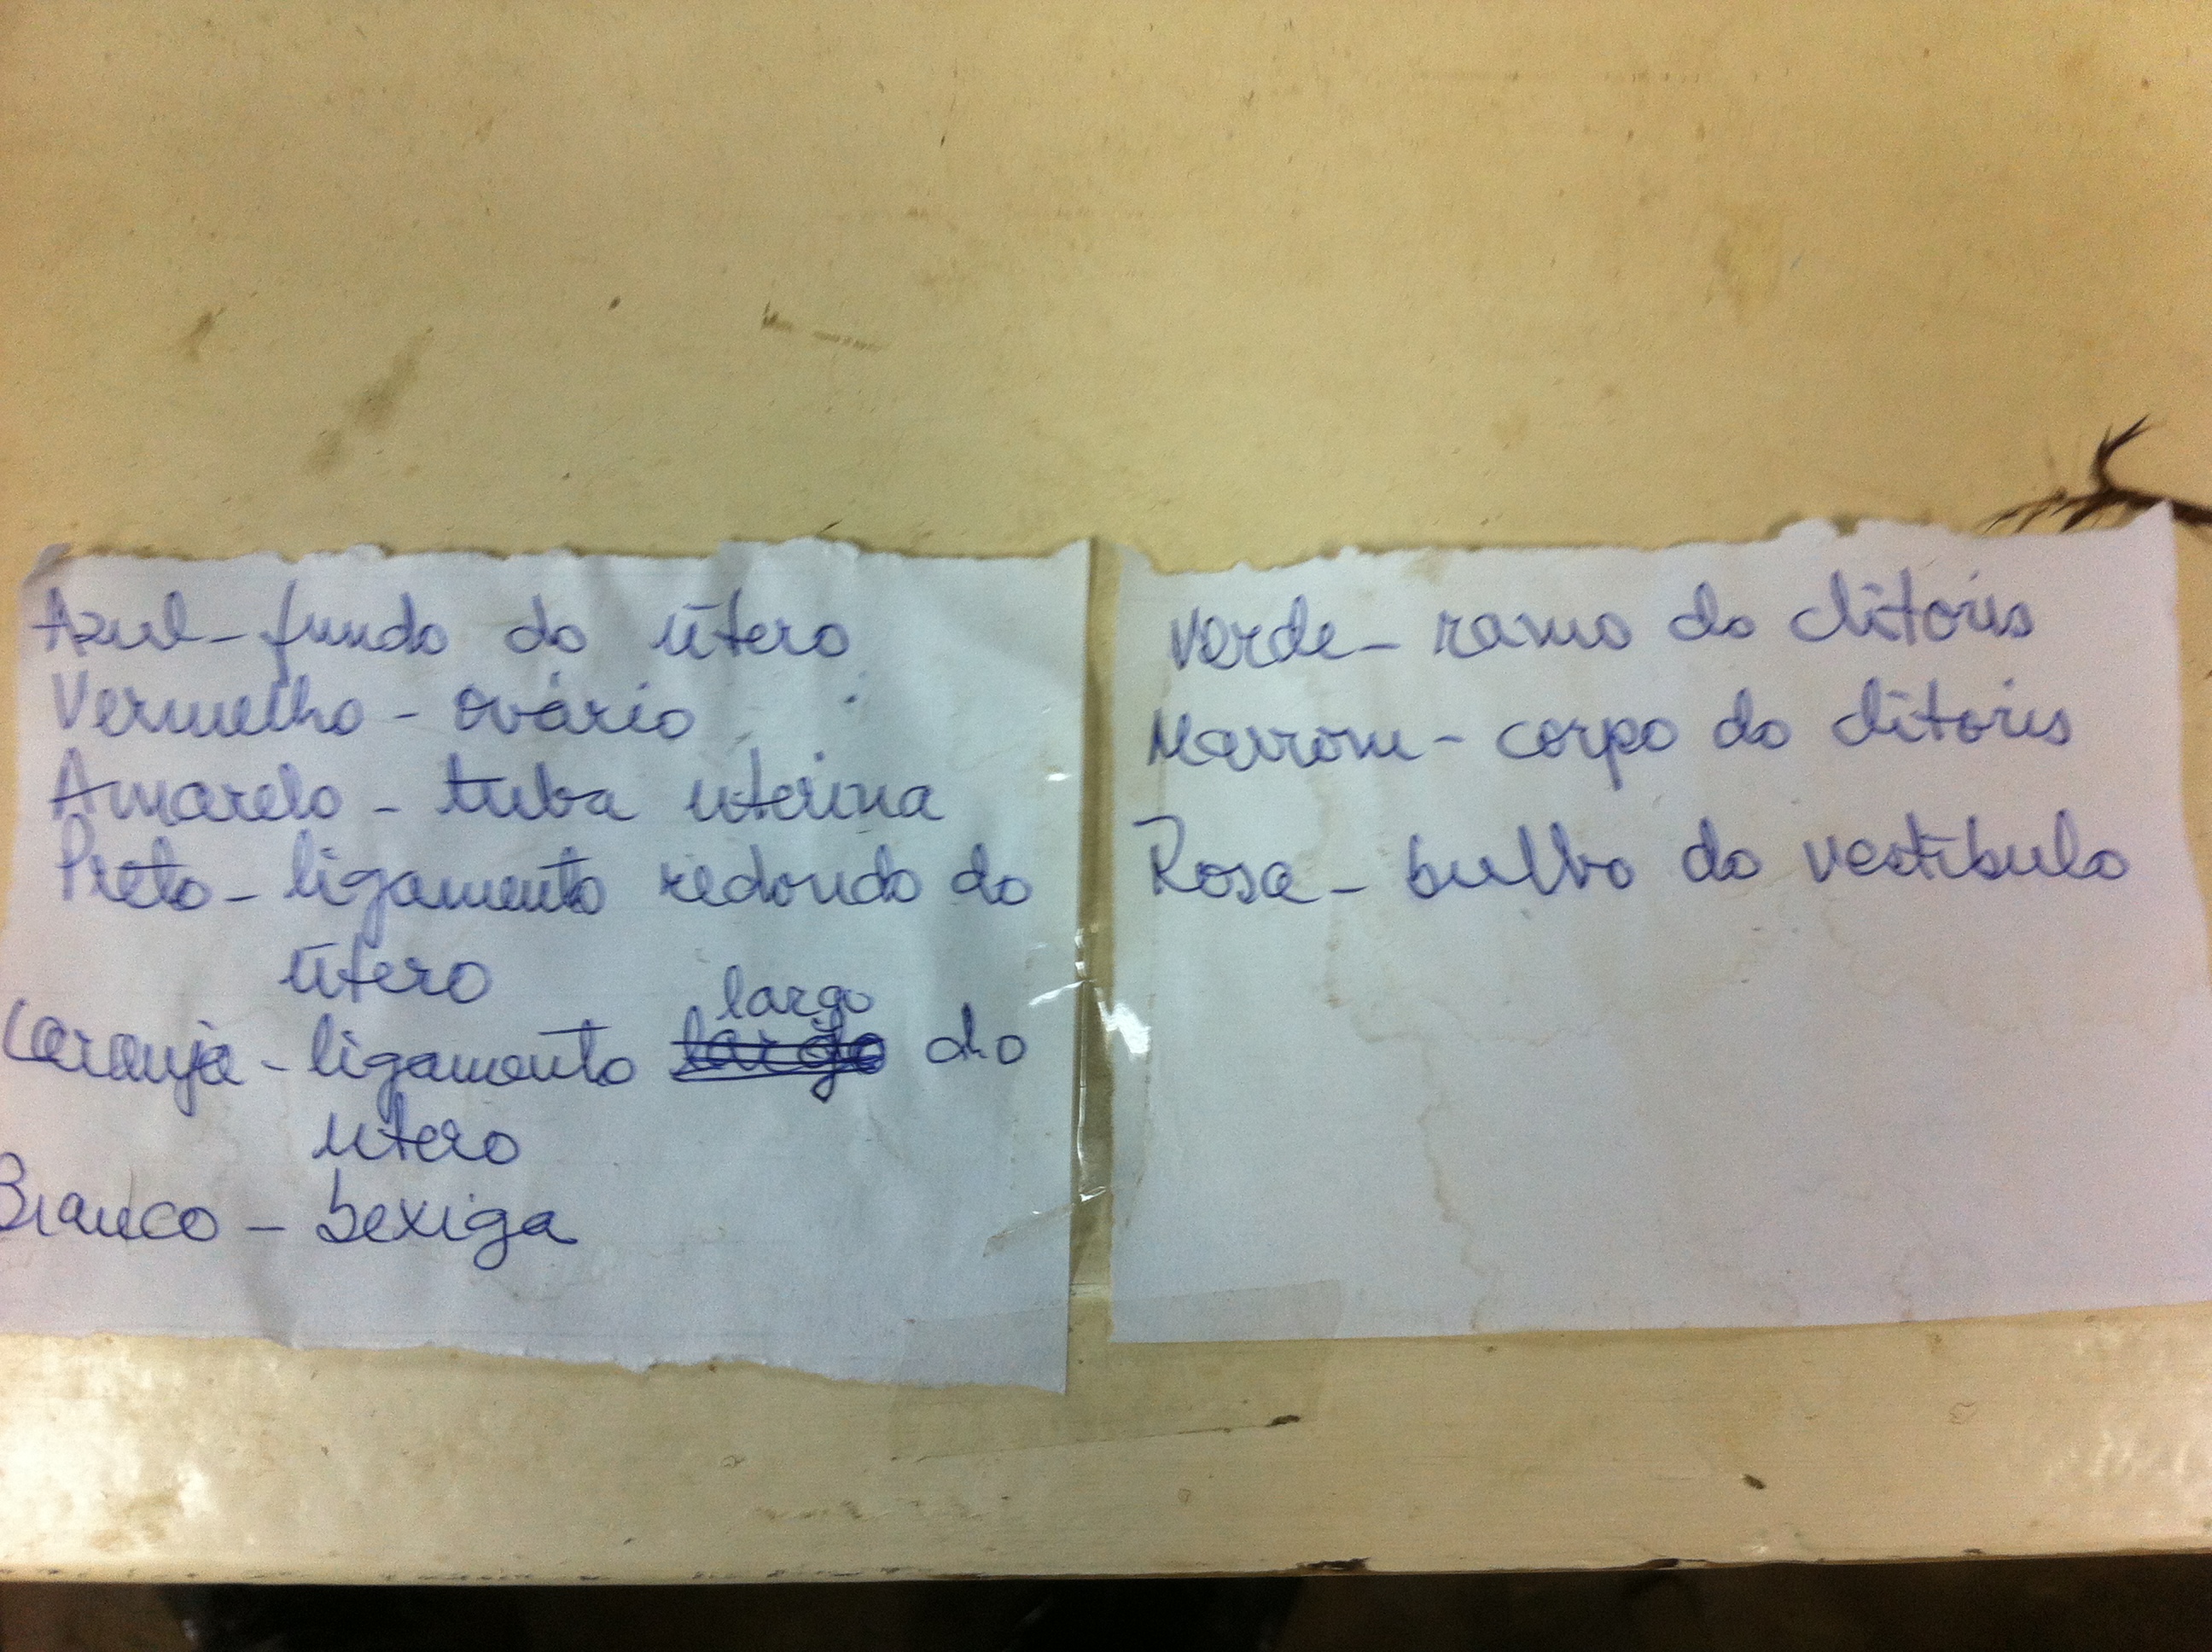 Azul - fundo do útero
Vermelho - ovário
Amarelo - tuba uterina
Preto - ligamento redondo do
útero
largo
Laranja - ligamento largo do
útero
Branco - bexiga
Verde - ramo do clitoris
Marrom - corpo do clitoris
Rosa - bulbo do vestíbulo